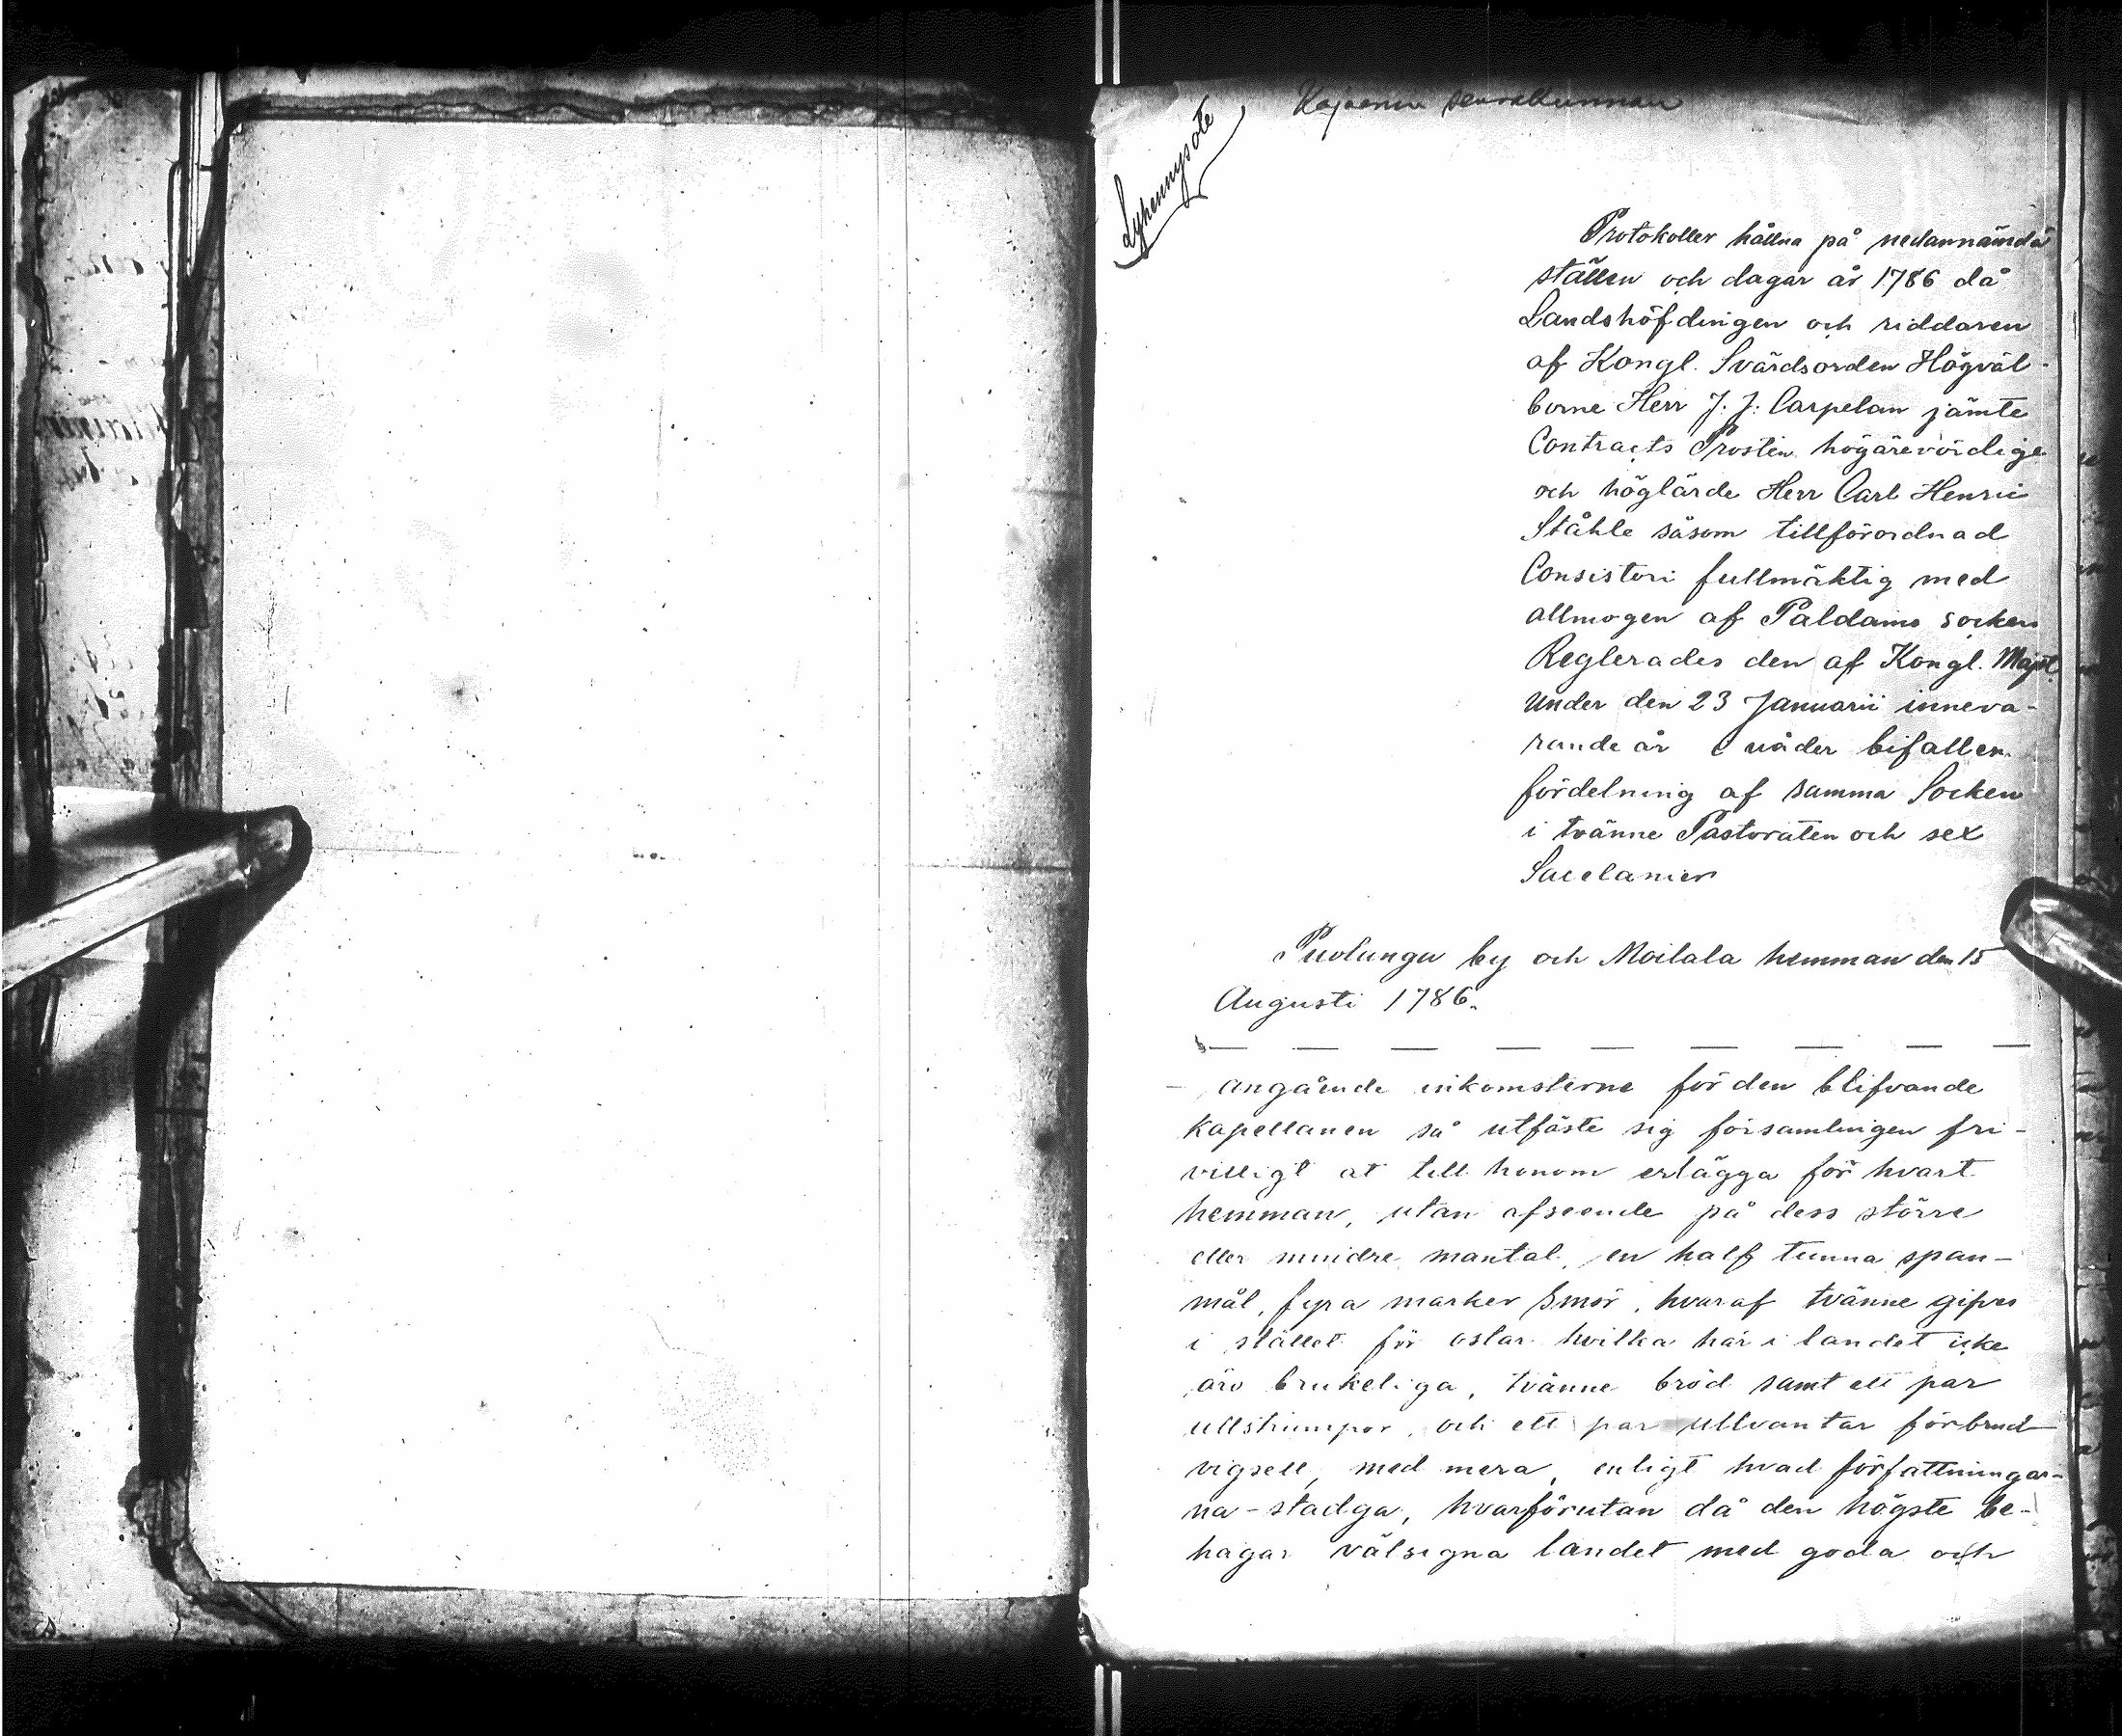 Kajaanin seurakunnan
Lyhennysote
Protokoller hållna på nedannämda
ställen och dagar år 1786 då
Landshöfdingen och riddaren
af Kongl. Svärdsorden Högväl-
borne Herr J. J. Carpelan jämte
Contracts Prosten högärevördige
och höglärde Herr Carl Henric
Ståhle såsom tillförordnad
Consistori fullmäktig med
allmogen af Paldamo socken
Reglerades den af Kongl. Majst.
under den 23 Januarii inneva-
rande år i nåder bifallen
fördelning af samma Socken
i tvänne Pastoraten och sex
Sacelanier
Puolanga by och Moilala hemman den 15
Augusti 1786.
angående inkomsterne för den blifvande
kapellanen så utfäste sig församlingen fri-
villigt at till honom erlägga för hvart
hemman, utan afseende på dess större
eller mindre mantal, en half tunna span-
mål, fyra marker smör, hvaraf tvänne gifves
i stället för ostar hvilka här i landet icke
äro brukeliga, tvänne bröd samt ett par
ullstrumpor, och ett par ullvantar för brud
vigsell, med mera, enligt hvad författningar-
na - stadga, hvarförutan då den högste be-
hagar välsigna landet med goda och